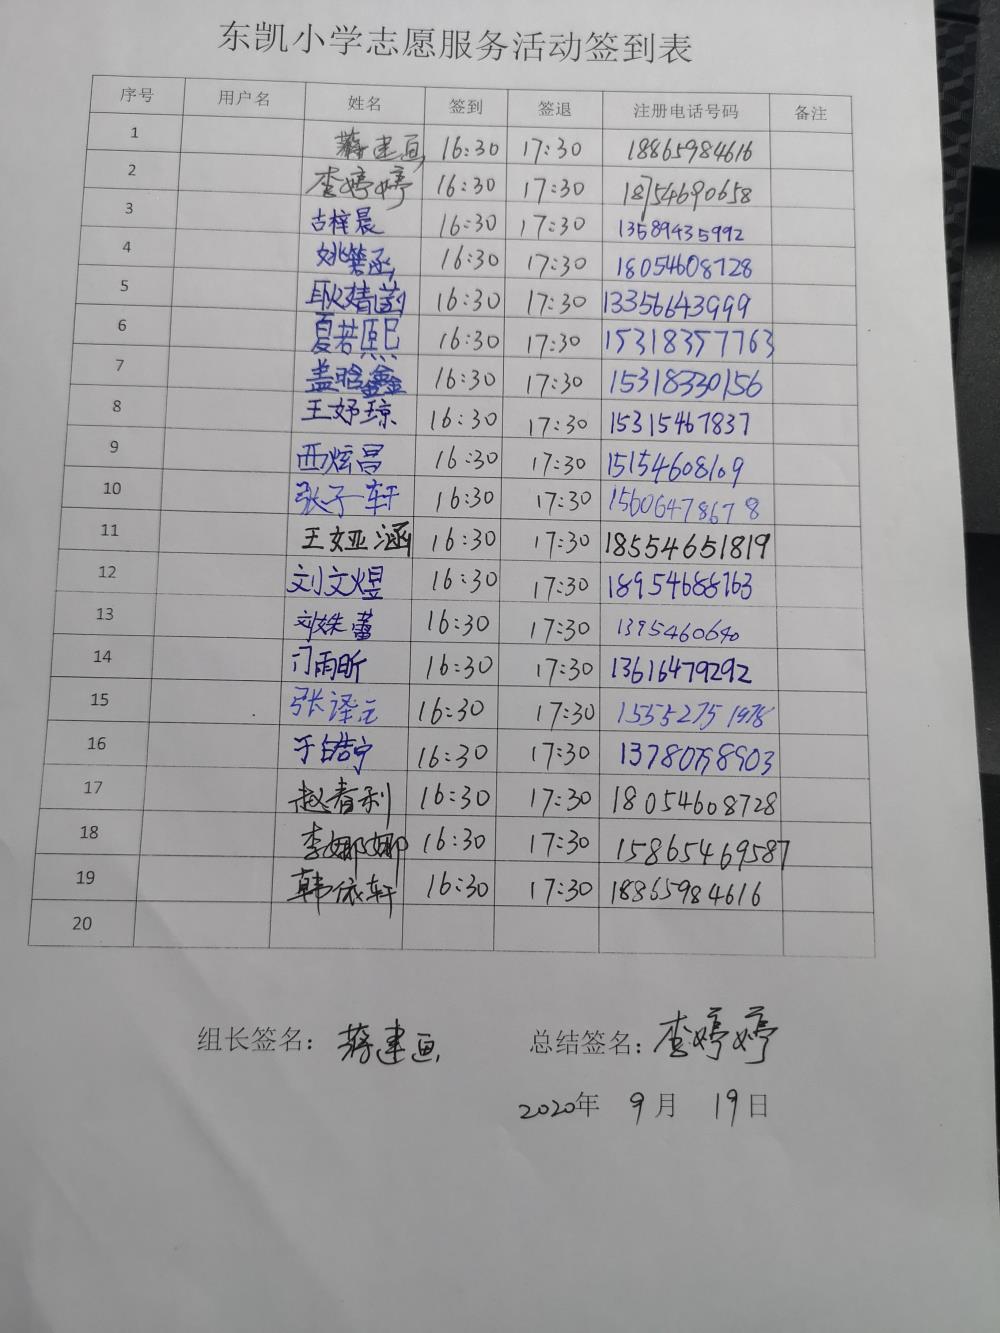 东凯小学志愿服务活动签到表
序号 用户名 姓名 签到 签退 注册电话号码 备注
1 蒋建画 16:30 17:30 18865984616
2 李婷婷 16:30 17:30 18754690658
3 古梓晨 16:30 17:30 13589435992
4 姚箬涵 16:30 17:30 18054608728
5 耿婧 16:30 17:30 13356643999
6 夏若熙 16:30 17:30 15318357763
7 盖晗鑫 16:30 17:30 15318330156
8 王妤琼 16:30 17:30 15315467837
9 西炫昌 16:30 17:30 15154608109
10 张子轩 16:30 17:30 15606478678
11 王娅涵 16:30 17:30 18554651819
12 刘文煜 16:30 17:30 18954688763
13 刘姝蕾 16:30 17:30 1395460640
14 门雨昕 16:30 17:30 13616479292
15 张译元 16:30 17:30 15552751978
16 于皓宁 16:30 17:30
17 赵春利 16:30 17:30 18054608728
18 李娜娜 16:30 17:30 15865469587
19 韩依轩 16:30 17:30 18865984616
20
组长签名： 蒋建画 总结签名： 李婷婷
2020年 9月 19日